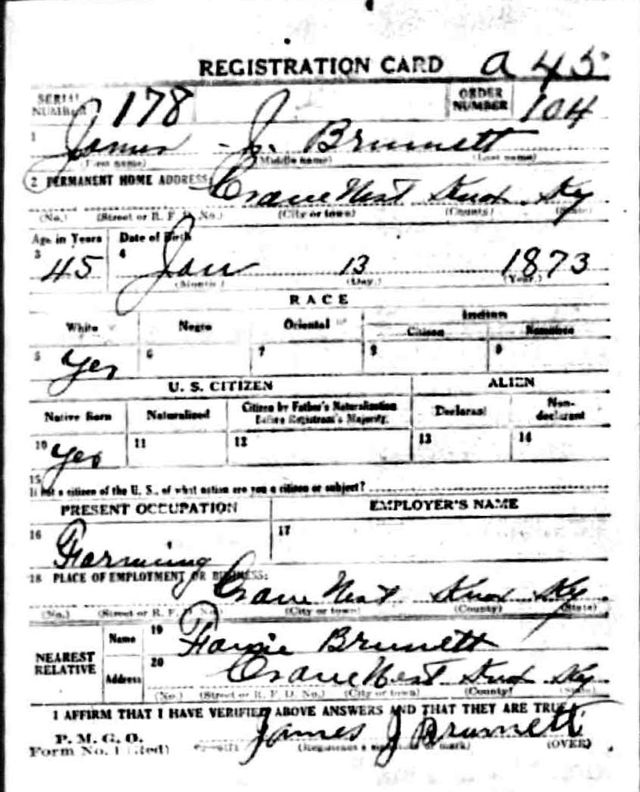 REGISTRATION CARD a 45
SERIAL NUMBER 178 ORDER NUMBER 104
1 James J. Brumett
(First name) (Middle name) (Last name)
2 PERMANENT HOME ADDRESS: Crane Nest Knox Ky
(No.) (Street or R. F. D. No.) (City or town) (County) (State)
Age in Years Date of Birth
3 45 4 Jan 13 1873
(Month) (Day) (Year)
RACE
White Negro Oriental Indian
Citizen Noncitizen
5 Yes 6 7 8 9
U. S. CITIZEN ALIEN
Native Born Naturalized Citizen by Father's Naturalization Before Registrant's Majority Declarant Non-declarant
10 Yes 11 12 13 14
15
If not a citizen of the U. S., of what nation are you a citizen or subject?
PRESENT OCCUPATION EMPLOYER'S NAME
16 Farming 17
18 PLACE OF EMPLOYMENT OR BUSINESS:
Crane Nest Knox Ky
(No.) (Street or R. F. D. No.) (City or town) (County) (State)
NEAREST RELATIVE Name 19 Brumett
Address 20 Crane Nest Knox Ky
(No.) (Street or R. F. D. No.) (City or town) (County) (State)
I AFFIRM THAT I HAVE VERIFIED ABOVE ANSWERS AND THAT THEY ARE TRUE
P. M. G. O.
Form No. 1 (Red) James J Brumett
(Registrant's signature or mark) (OVER)